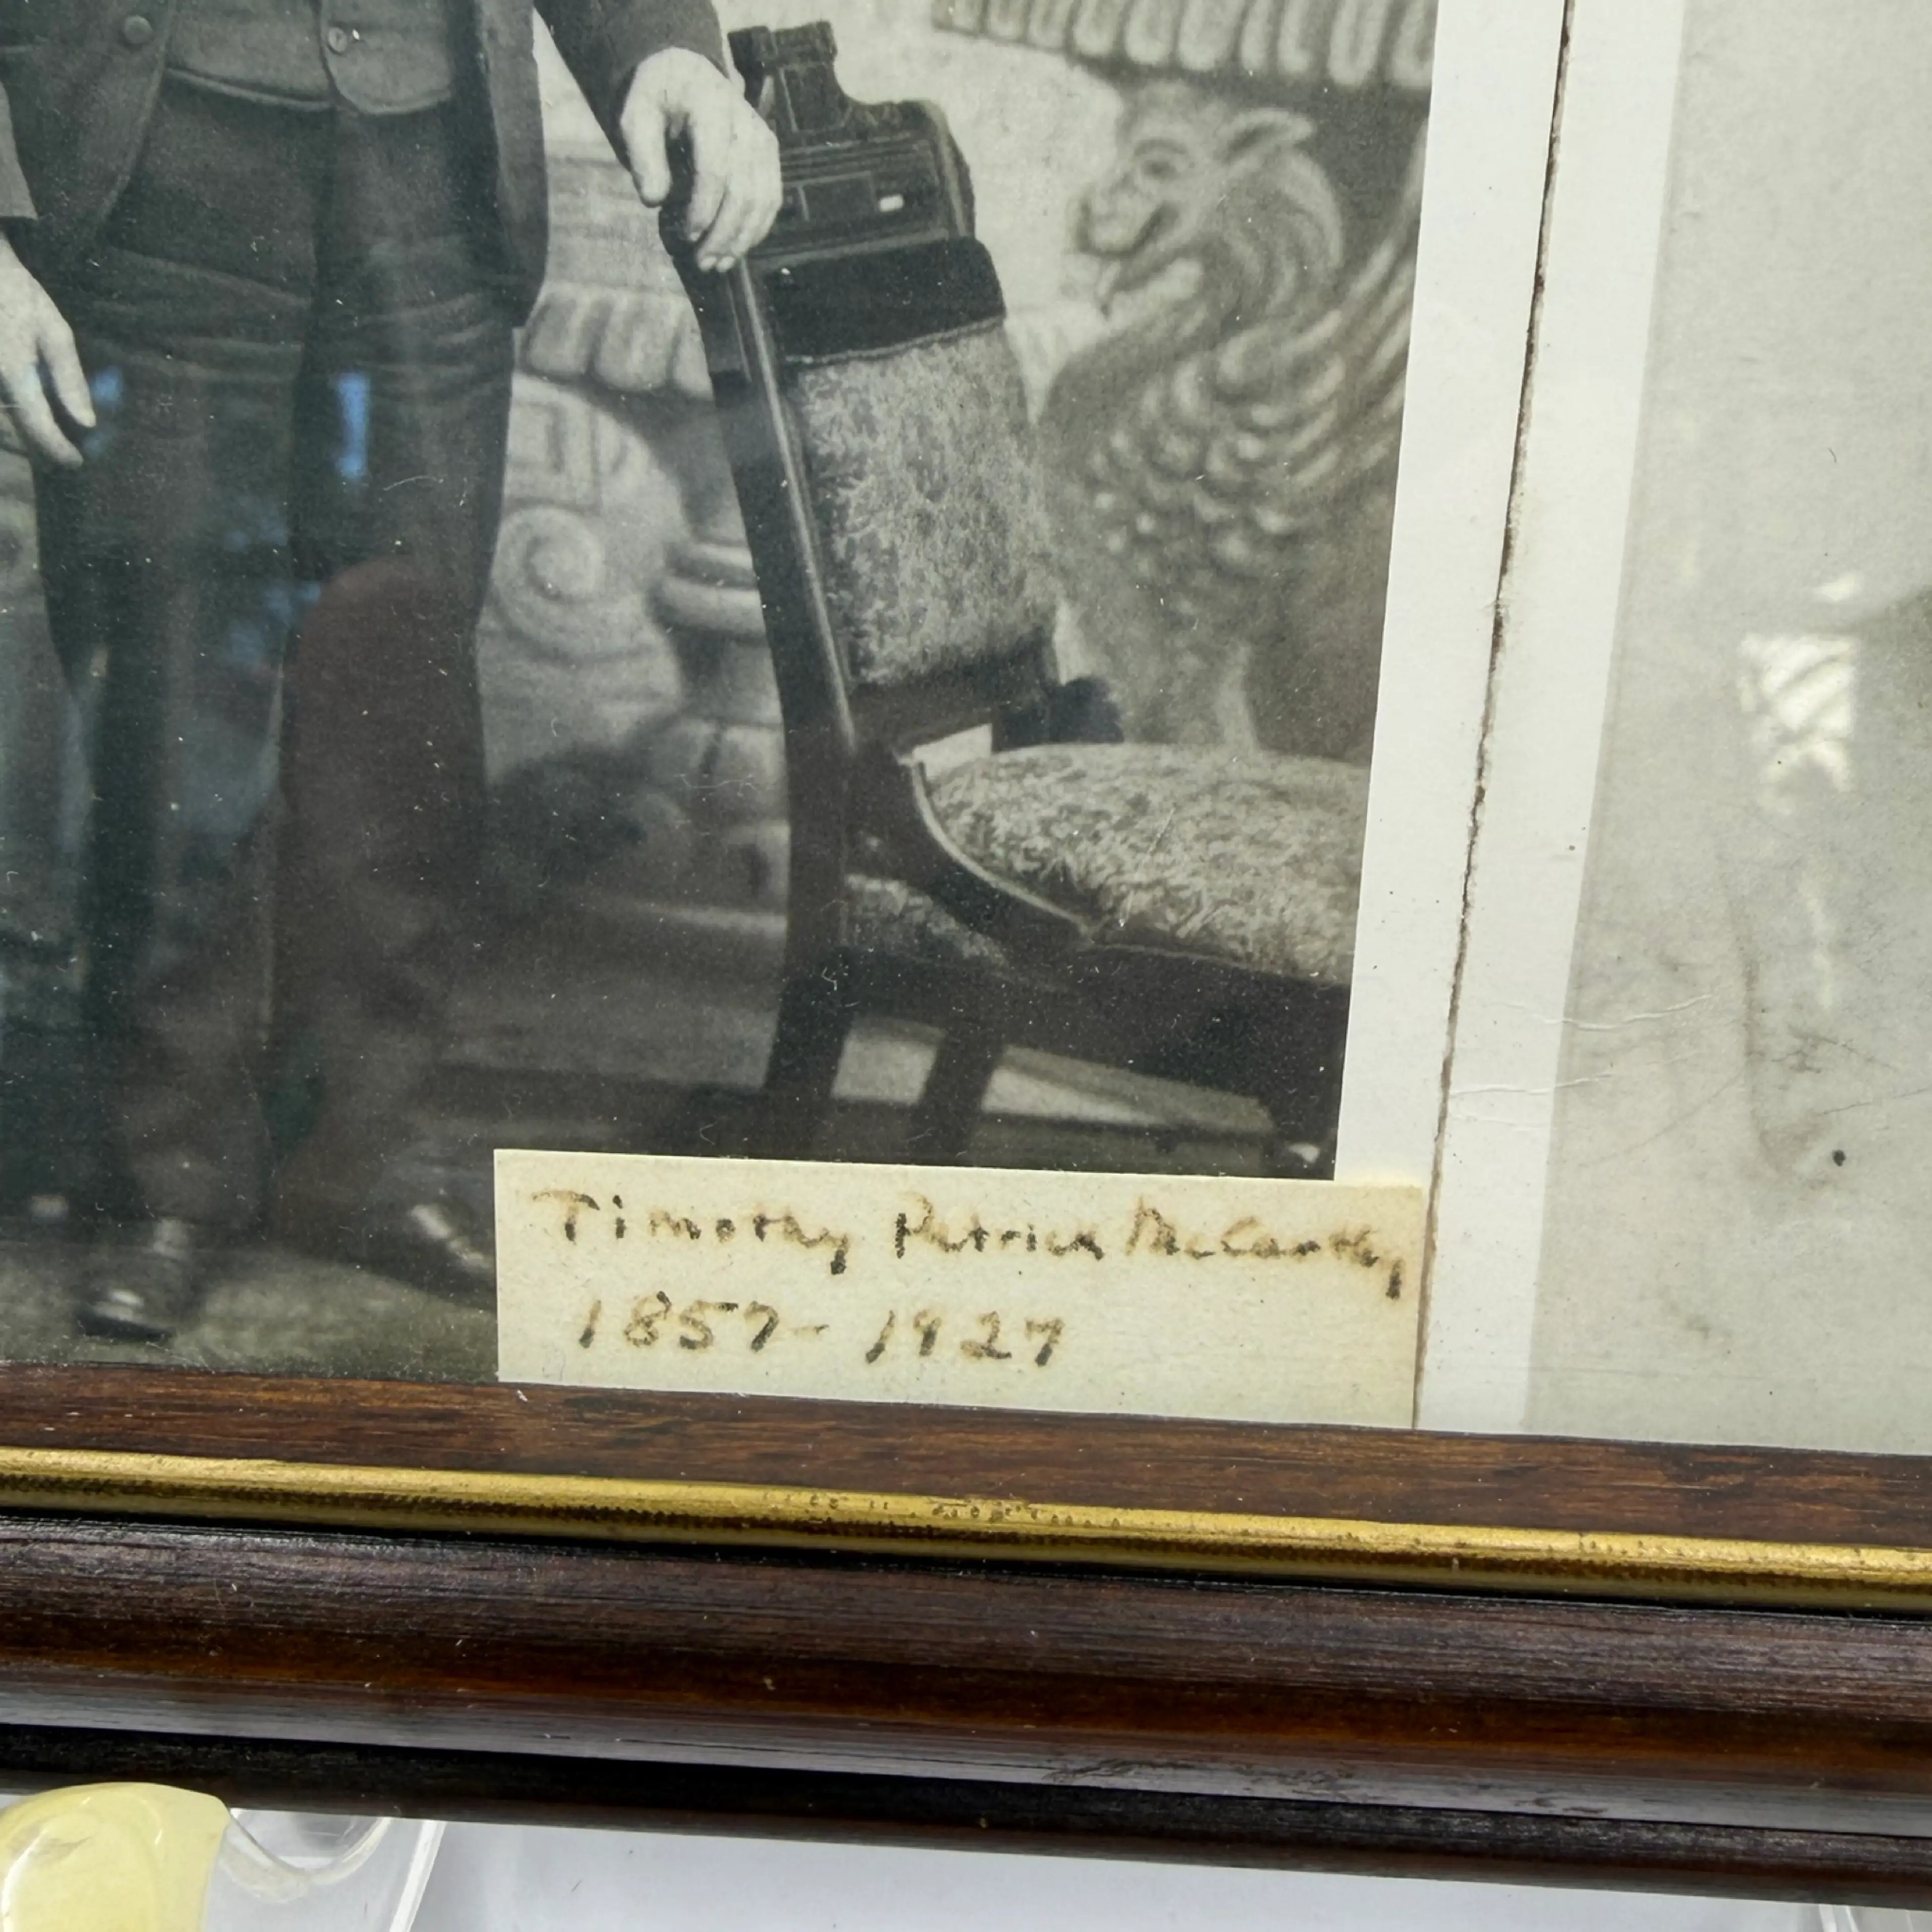 Timothy Patrick McCarthy
1857-1927